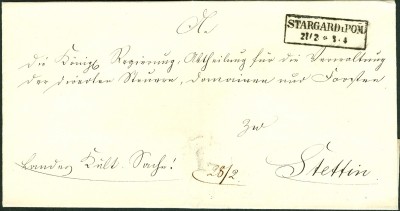 An
STARGARD i. POM.
21/2 * 3-4
die König. Regierung, Abtheilung für die Verwaltung
der direkten Steuern, Domainen und Forsten
zu
Landes Kult. Sache! 28/2 Stettin